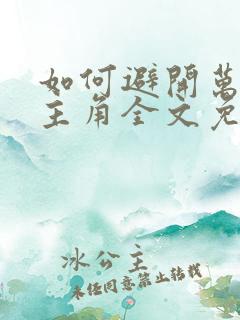 如何避開萬
主角全文免
冰公主
未经同意禁止转载